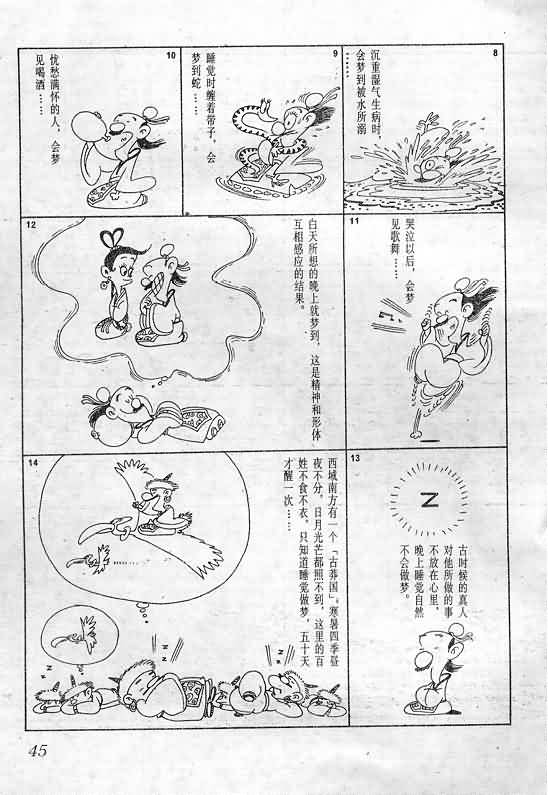 8
沉重湿气生病时，
会梦到被水所溺
……
9
睡觉时缠着带子，会
梦到蛇……
10
忧愁满怀的人，会梦
见喝酒……
11
哭泣以后，会梦
见歌舞……
12
白天所想的晚上就梦到，这是精神和形体
互相感应的结果。
13
Z
古时候的真人
对他所做的事
不放在心里，
晚上睡觉自然
不会做梦。
14
西域南方有一个「古莽国」。寒暑四季昼
夜不分。日月光芒都照不到，这里的百
姓不食不衣，只知道睡觉做梦，五十天
才醒一次……
z z
z z
z z
45